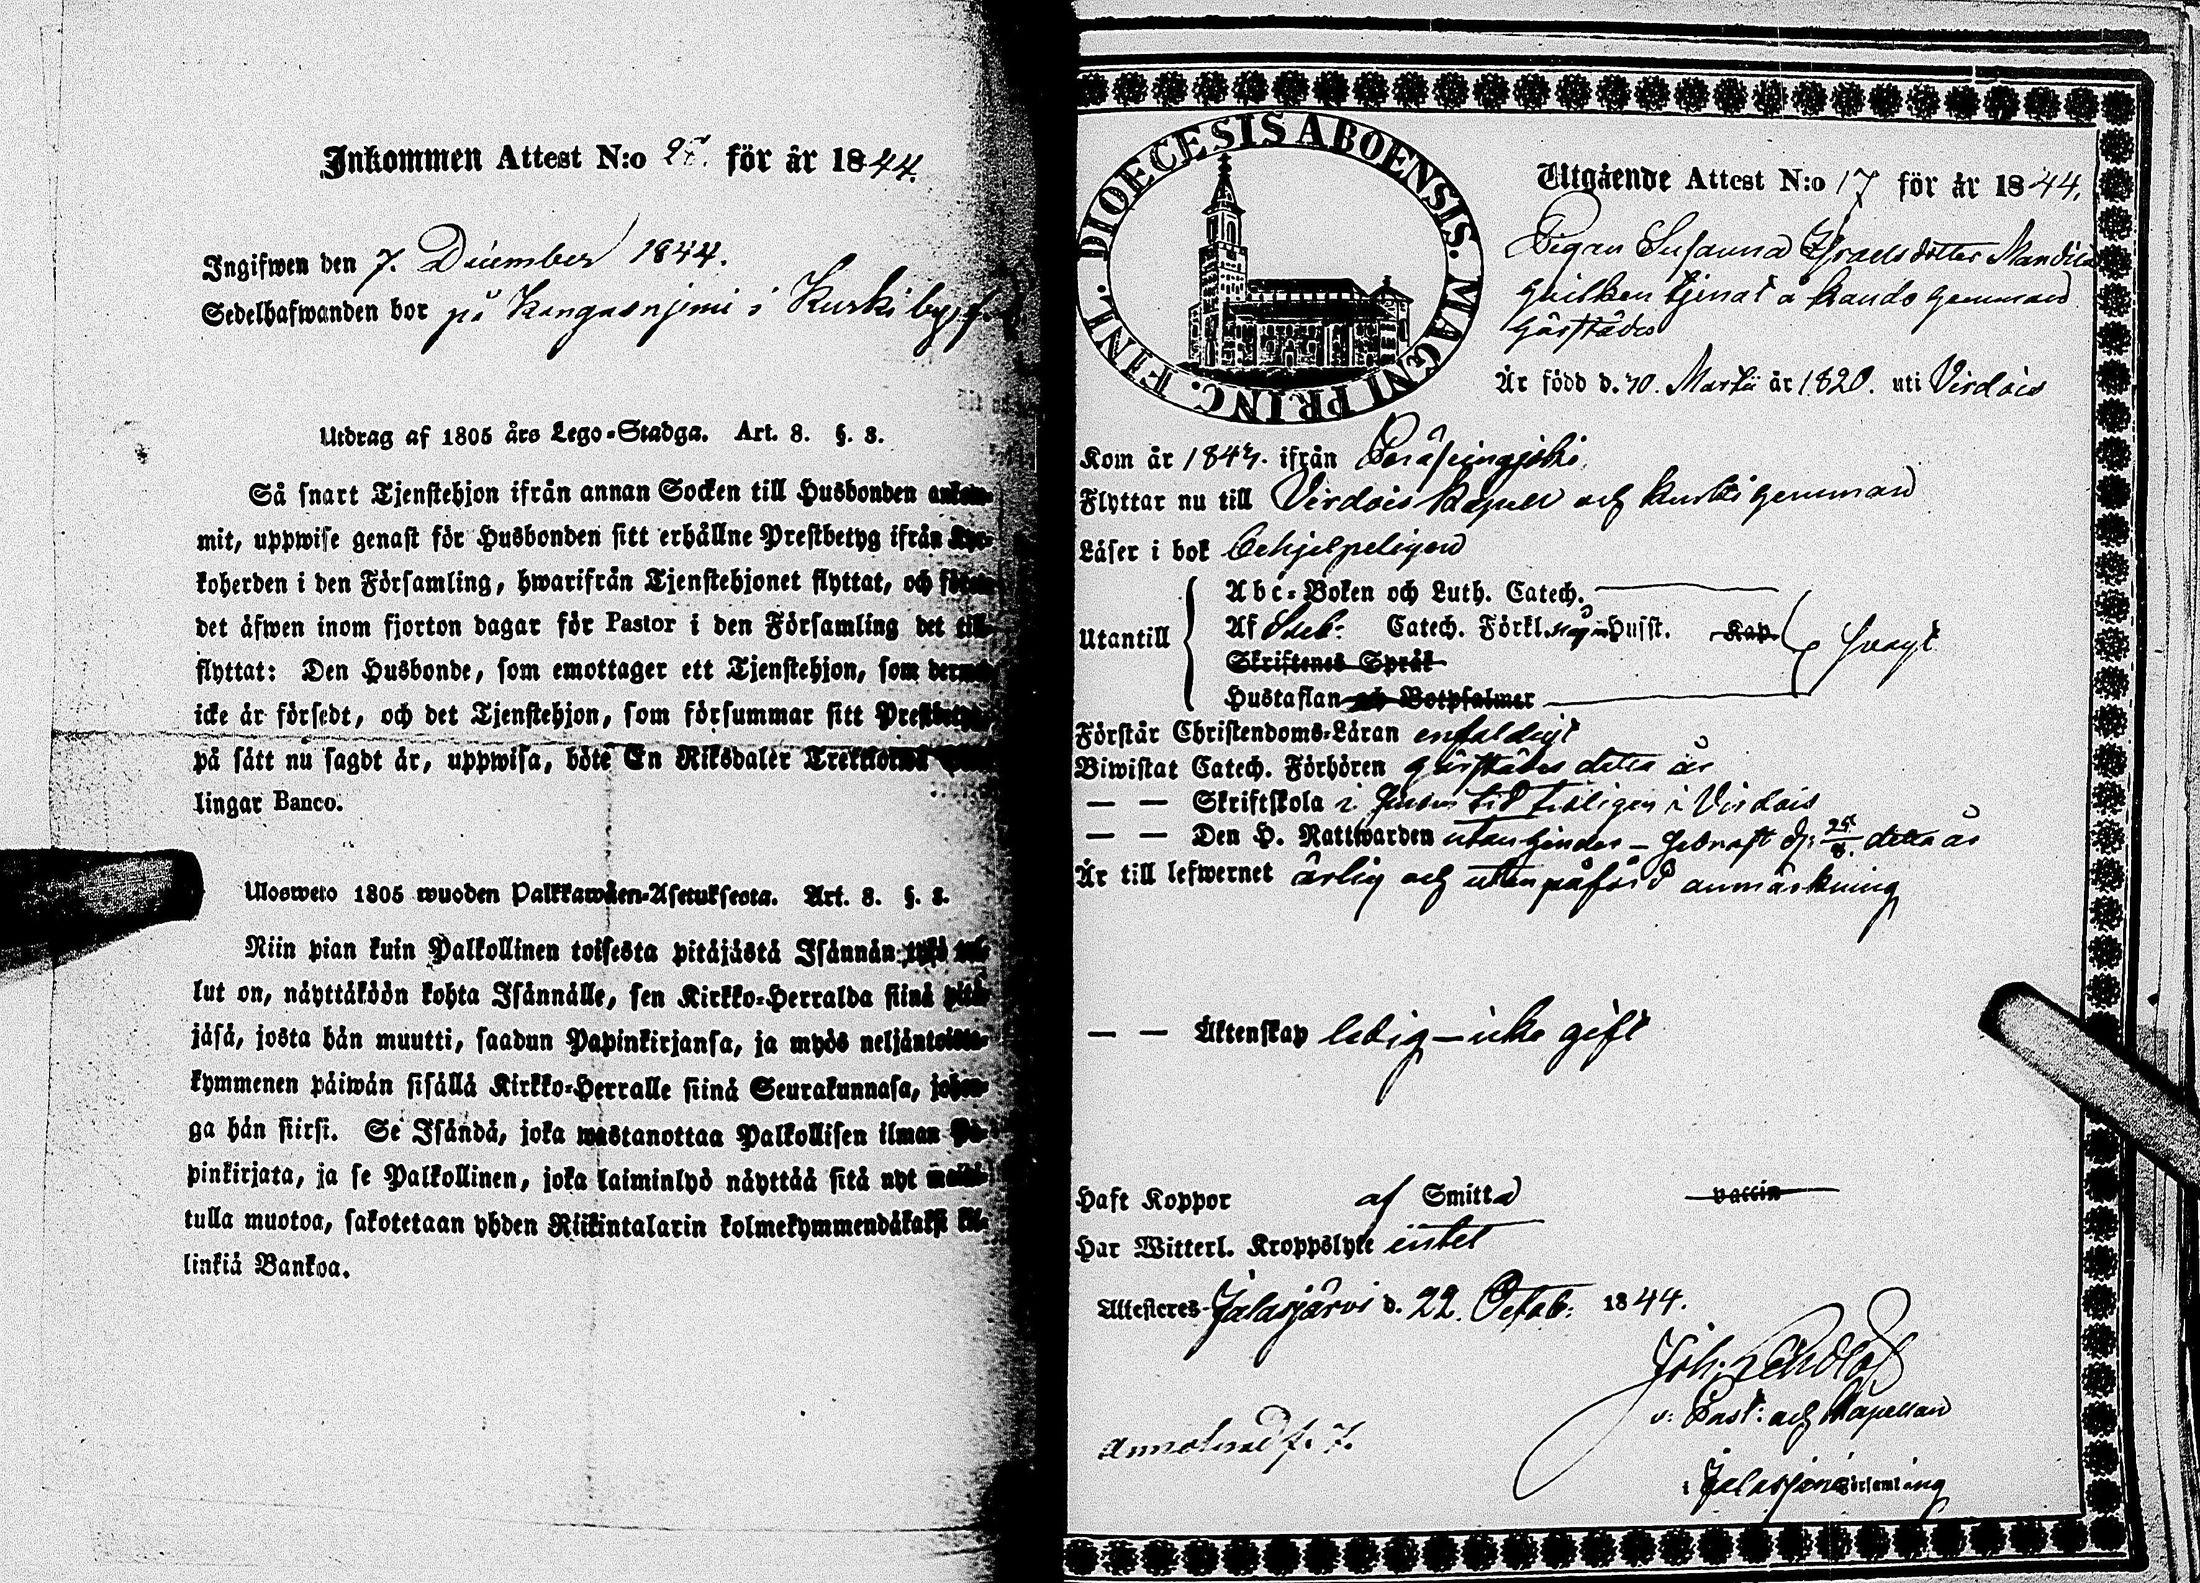 Inkommen Attest N:o för år 1844.
Ingifwen den 7. December 1844.
Sedelhafwanden bor på Kangasnjemi i Kurki by
Utdrag af 1805 års Lego-Stadga. Art. 8. §. 8.
Så snart Tjenstehjon ifrån annan Socken till Husbonden ankom-
mit, uppwise genast för Husbonden sitt erhållne Prestbetyg ifrån Kyr-
koherden i den Församling, hwarifrån Tjenstehjonet flyttat, och
det äfwen inom fjorton dagar för Pastor i den Församling det till-
flyttat: Den Husbonde, som emottager ett Tjenstehjon, som dermed
icke är försedt, och det Tjenstehjon, som försummar sitt Prestbetyg,
på sätt nu sagdt är, uppwisa, böte En Riksdaler Trettiotwå
lingar Banco.
Ulosweto 1805 wuoden Palkkawäen-Asetuksesta. Art. 8. §. 8.
Niin pian kuin Palkollinen toisesta pitäjästä Isännän tykö tul-
lut on, näyttäköön kohta Isännälle, sen Kirkko-Herralda siinä pitä-
jäsä, josta hän muutti, saadun Papinkirjansa, ja myös neljäntoista-
kymmenen päiwän sisällä Kirkko-Herralle siinä Seurakunnasa, johon-
ga hän siirsi. Se Isändä, joka wastanottaa Palkollisen ilman Pa-
pinkirjata, ja se Palkollinen, joka laiminlyö näyttää sitä nyt
tulla muotoa, sakotetaan yhden Riikintalarin kolmekymmendäkaksi kil-
linkiä Bankoa.
DIOECESIS ABOENSIS. MAGNI PRINC. FINL.
Utgående Attest N:o 17 för år 1844.
Pigan Susanna Israelsdotter
hvilken tjenat å hemmand
härstädes
Är född d. 10. Martii år 1820. uti Virdois
Kom år 184 ifrån Peräseinäjoki
Flyttar nu till Virdois Kapell och Kurki hemmand
Läser i bok behjelpeligen
Utantill
Abc-Boken och Luth. Catech.
Af Sveb. Catech. Förkl. något Husst. Kap.
Skriftenes Språk
Hustaflan och Botpsalmer
svagt
Förstår Christendoms-Läran enfaldigt
Biwistat Catech. Förhören härstädes detta år
— — Skriftskola i sinom tid troligen i Virdois
— — Den H. Nattwarden utan hinder – sednast d: detta år
Är till lefwernet ärlig och utan påförd anmärkning
— — Äktenskap ledig – icke gift
Haft Koppor af Smitta vaccin
Har Witterl. Kroppslyte intet
Attesteres Jalasjärvi d. 22. Octob: 1844.
Joh:
v: Past: och Kapellan
Annoterad p. 7.
i Jalasjärvi Församling